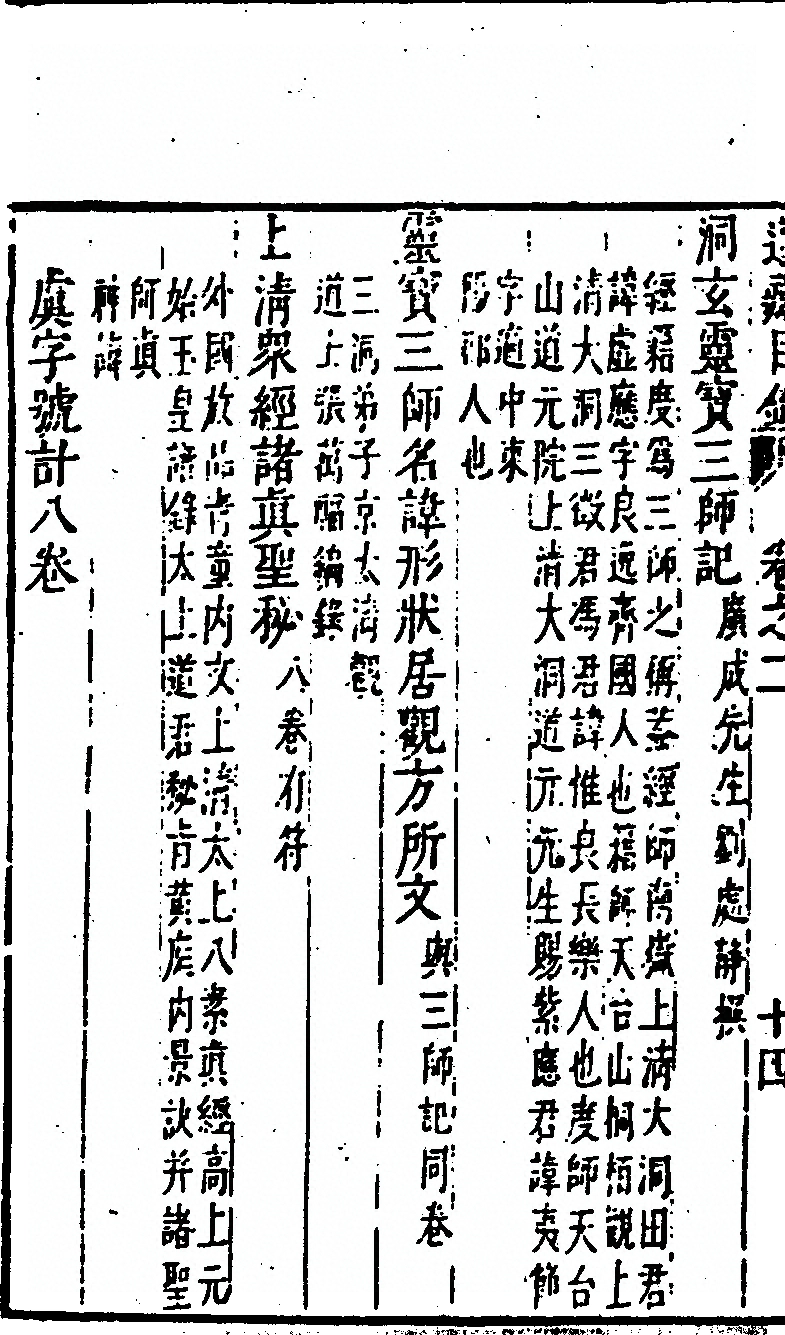 道藏目錄 卷之二 十四
洞玄靈寶三師記 廣成先生劉處静撰
經籍度爲三師之稱葢經師南嶽上清大洞田君
諱虚應字良逸齊國人也籍師天台山桐栢觀上
清大洞三徵君馮君諱惟良長樂人也度師天台
山道元院上清大洞道元先生賜紫應君諱夷節
字適中東
陽郡人也
靈寶三師名諱形狀居觀方所文 與三師記同卷
三洞弟子京太清觀
道士張萬福編錄
上清衆經諸眞聖秘 八卷有符
外國放品青童内文上清太上八素眞經高上元
始玉皇譜錄太上道君秘旨黃庭内景訣并諸聖
師眞
神諱
虞字號計八卷